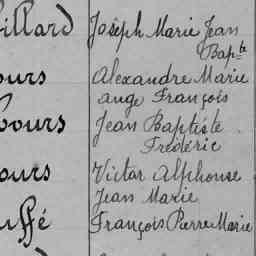 illard Joseph Marie Jean
Bapte
ours Alexandre Marie
ange François
ours Jean Baptiste
Frédéric
ours Victor Alphonse
Jean Marie
uffé François Pierre Marie